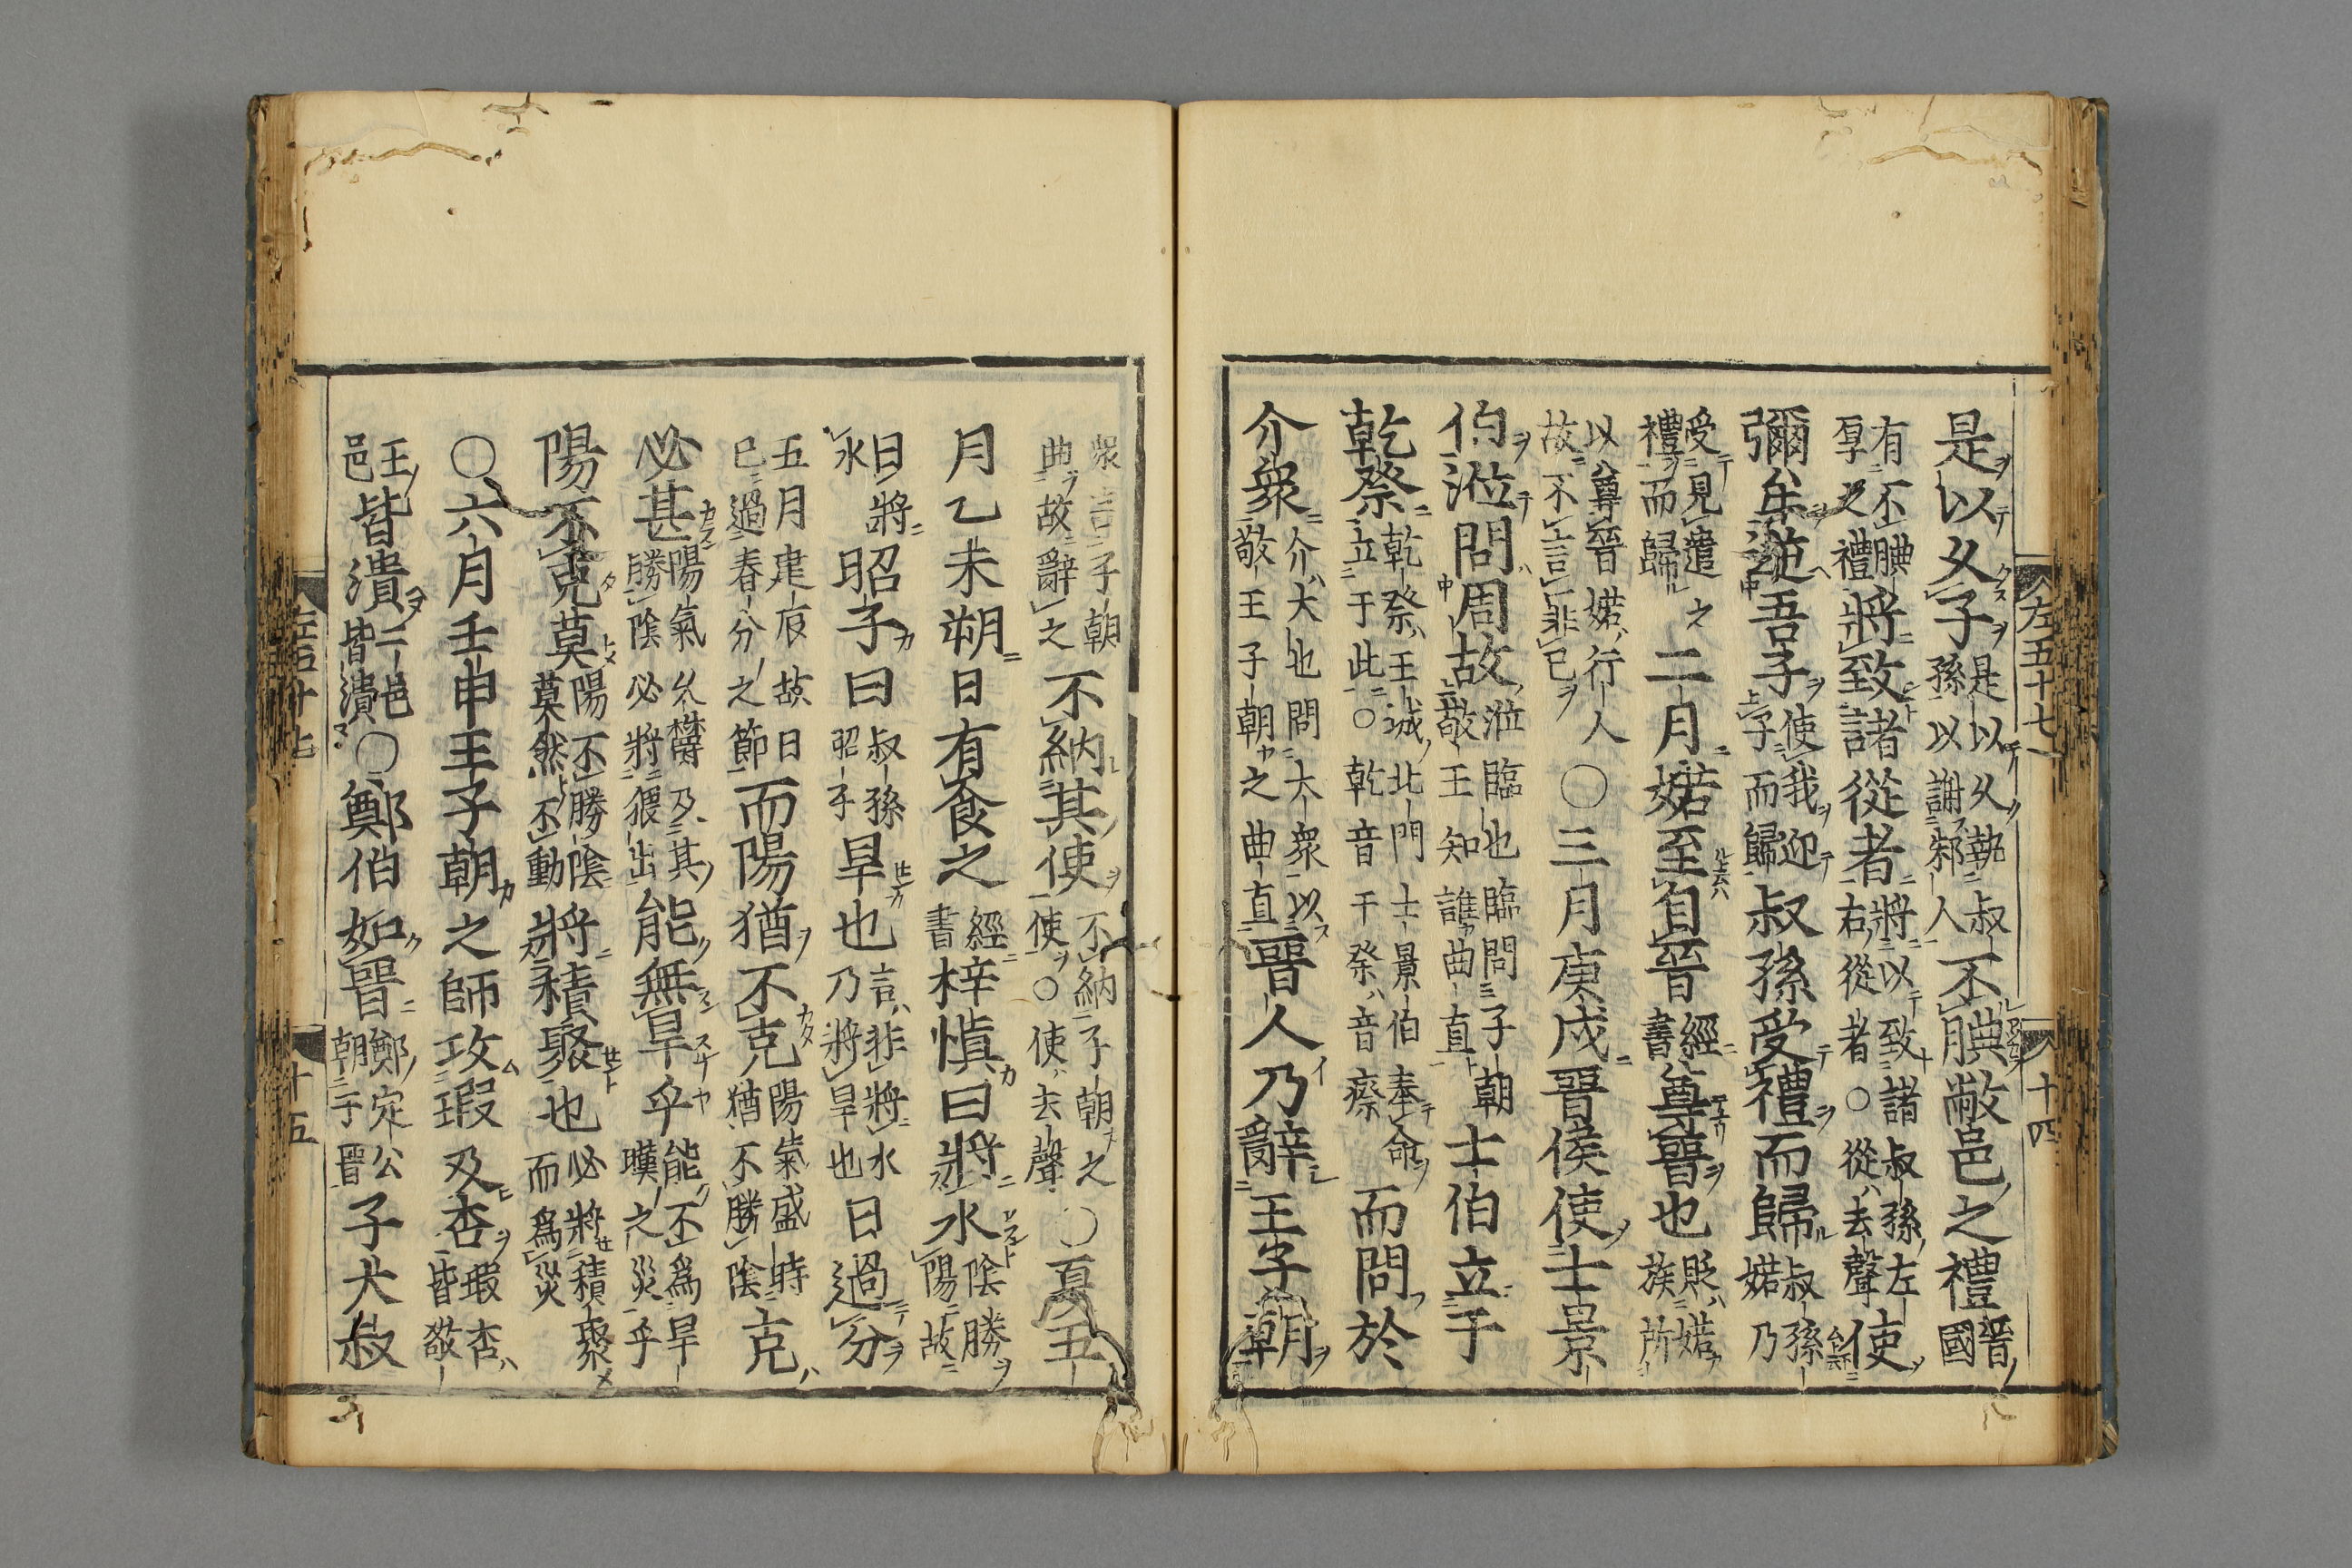 是以久子是以久執叔孫以謝邾人不腆敝邑之禮晉國
有不腆厚之禮將致諸從者將以致諸叔孫左右從者○從去聲使
彌牟逆吾子使我迎子而歸叔孫受禮而歸叔孫婼乃
受見遣之禮而歸二月婼至自晉經書尊晉也貶婼族所
以尊晉婼行人故不言非已〇三月庚戌晉侯使士景
伯涖問周故涖臨也臨問子朝敬王知誰曲直士伯立于
乾祭乾祭王城北門士景伯奉命立于此○乾音干祭音瘵而問於
介衆介大也問大衆以敬王子朝之曲直晉人乃辭王子朝
左五十七
十四
衆言子朝曲故辭之不納其使不納子朝之使○使去聲〇夏五
月乙未朔日有食之經書梓慎曰將水陰勝陽故
曰將水昭子曰叔孫昭子旱也言非將水乃將旱也日過分
五月建辰故日已過春分之節而陽猶不克陽氣盛時猶不勝陰克
必甚陽氣久鬱及其勝陰必將猥出能無旱乎能不爲旱暵之災乎
陽不克莫陽不勝陰莫然不動將積聚也必將積聚而爲災
〇六月壬申王子朝之師攻瑕及杏瑕杏皆敬
王邑皆潰二邑皆潰〇鄭伯如晉鄭定公朝于晉子大叔
左五十七
十五